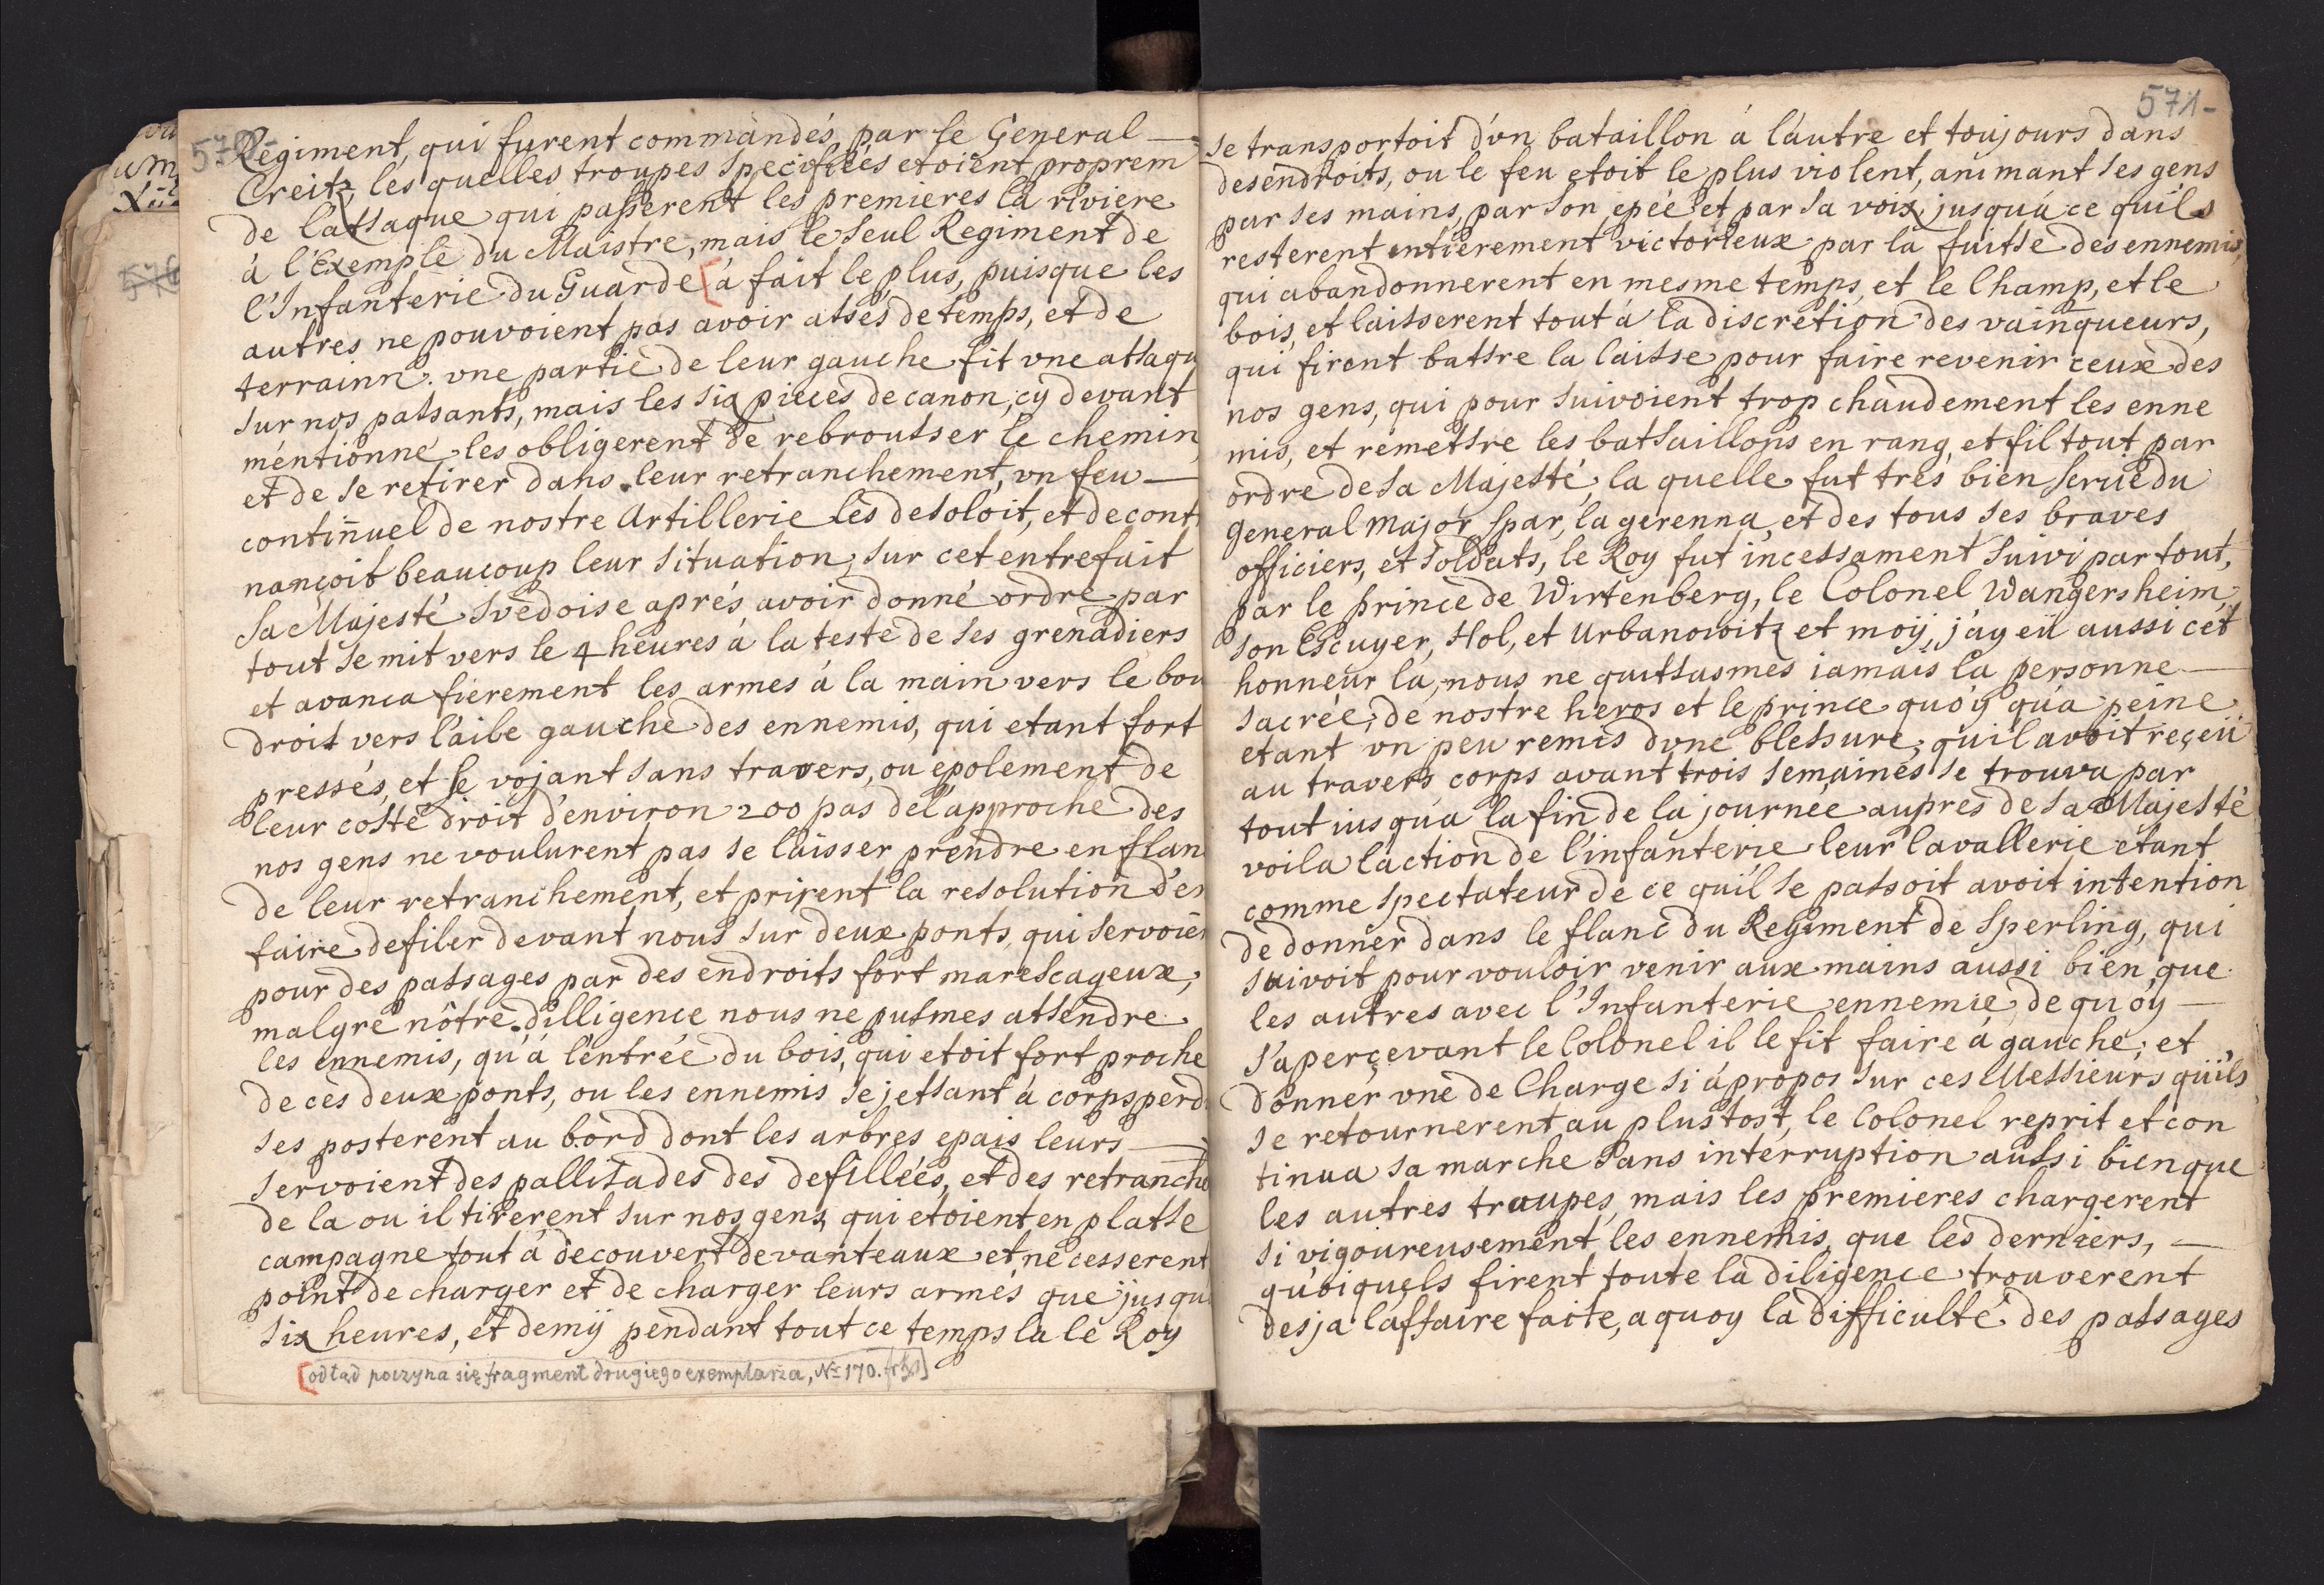 570-
Regiment, qui furent commandés, par le General —
Creitz, les quelles troupes specifiées etoient proprem
de lattaque qui passerent les premieres la riviere
à l'Exemple du Maistre, mais le seul Regiment de
l'Infanterie du Guarde [à fait le plus, puisque les
autres ne pouvoient pas avoir atsés de temps, et de
terrainn. vne partie de leur gauche fit vne attaqu
sur nos patsants, mais les six pieces de canon, cy devant
mentionne les obligerent de rebroutser le chemin,
et de se retirer dans leur retranchement, vn feu —
continuel de nostre Artillerie les desoloit, et decont
nançoit beaucoup leur situation, sur cet entrefait
sa Majesté Svedoise aprés avoir donné ordre par
tout se mit vers le 4 heures à la teste de ses grenadiers
et avanca fierement les armes à la main vers le bou
droit vers l'aile gauche des ennemis, qui etant fort
pressés, et se vojant sans travers, ou epolement de
leur costé droit d'environ 200 pas de l'approche des
nos gens ne voulurent pas se laisser prendre en flan
de leur retranchement, et prirent la resolution d'en
faire defiler devant nous sur deux ponts, qui servoien
pour des patsages par des endroits fort marescageux,
malgré nôtre dilligence nous ne putmes attendre
les ennemis, qu'à l'entrée du bois, qui etoit fort proche
de ces deux ponts, ou les ennemis se jettant à corps perd
ses posterent au bord dont les arbres epais leurs —
servoient des pallisades des defillées, et des retranche
de la ou il tirerent sur nos gens, qui etoient en platte
campagne tout à decouvert devanteaux et ne cesserent
point de charger et de charger leurs armés que jusqu
six heures, et demÿ pendant tout ce temps la le Roy
[odtąd poczyna się fragment drugiego exemplarza, Nr 170.
571-
se transportoit d'vn bataillon à l'autre et toujours dans
desendroits, ou le feu etoit le plus violent, animant ses gens
par ses mains, par son epéé et par sa voix, jusqu'à ce quils
resterent entierement victorieux par la fuitte des ennemis,
qui abandonnerent en mesme temps, et le Champ, et le
bois, et laitserent tout à la discretion des vainqueurs,
qui firent battre la laitse pour faire revenir ceux des
nos gens, qui pour suivoient trop chaudement les enne
mis, et remettre les battaillons en rang, et fil tout par
ordre de sa Majesté, la quelle fut trés bien servie du
General Major Spar, lagerenna, et des tous ses braves
officiers, et soldats, le Roy fut incessament suivi par tout,
par le prince de Wirtenberg, le Colonel Wangersheim,
son Escuyer, Hol, et Urbanowitz et moÿ, j'aÿ eü aussi cet
honneur la, nous ne quittasmes iamais la personne —
sacrée, de nostre heros et le prince quoÿ qu'a peine
etant vn peu remis d'vne bletsure, qu'il avoit reçeü
au travers corps avant trois semaines se trouva par
tout iusqu'a la fin de la journée aupres de sa Majesté
voila l'action de l'infanterie leur Cavallerie etant
comme spectateur de ce quil se patsoit avoit intention
de donner dans le flanc du Regiment de Sperling, qui
suivoit pour vouloir venir aux mains aussi bien que
les autres avec l'Infanterie ennemie, de quoÿ —
s'aperçevant le Colonel il le fit faire à gauche, et
donner vne de Charge si à propos sur ces Messieurs quïls
se retournerent au plustost, le Colonel reprit et con
tinua sa marche sans interruption autsi bien que
les autres troupes, mais les premieres chargerent
si vigoureusement les ennemis, que les derniers, —
quoiquels firent toute la diligence trouverent
desja l'affaire faite, a quoy la difficulté des patsages